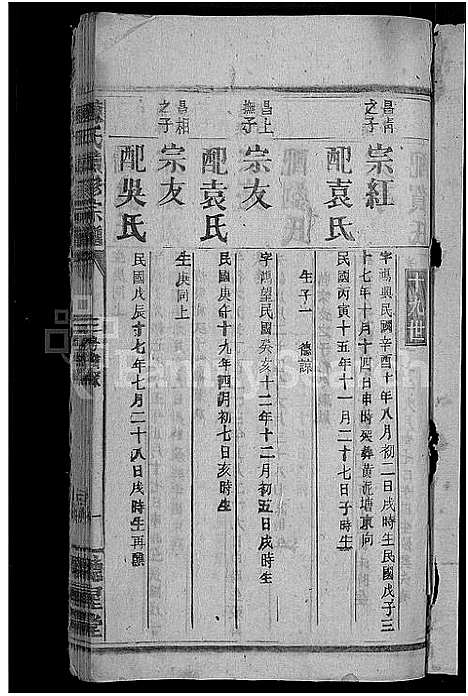 十九世
昌清之子
宗紅
字鴻興民國辛酉十年八月初二日戌時生民國戊子三
十七年十月十四日申時葬黃泥塘東向
配袁氏
民國丙寅十五年十一月二十七日子時生
生子一 德謀
昌上撫子
宗友
字鴻望民國癸亥十二年十二月初五日戌時生
配袁氏
民國庚午十九年四月初七日亥時生
昌相之子
宗友
生庚同上
配吳氏
民國戊辰十七年七月二十八日戌時生再醮
FamilySearch